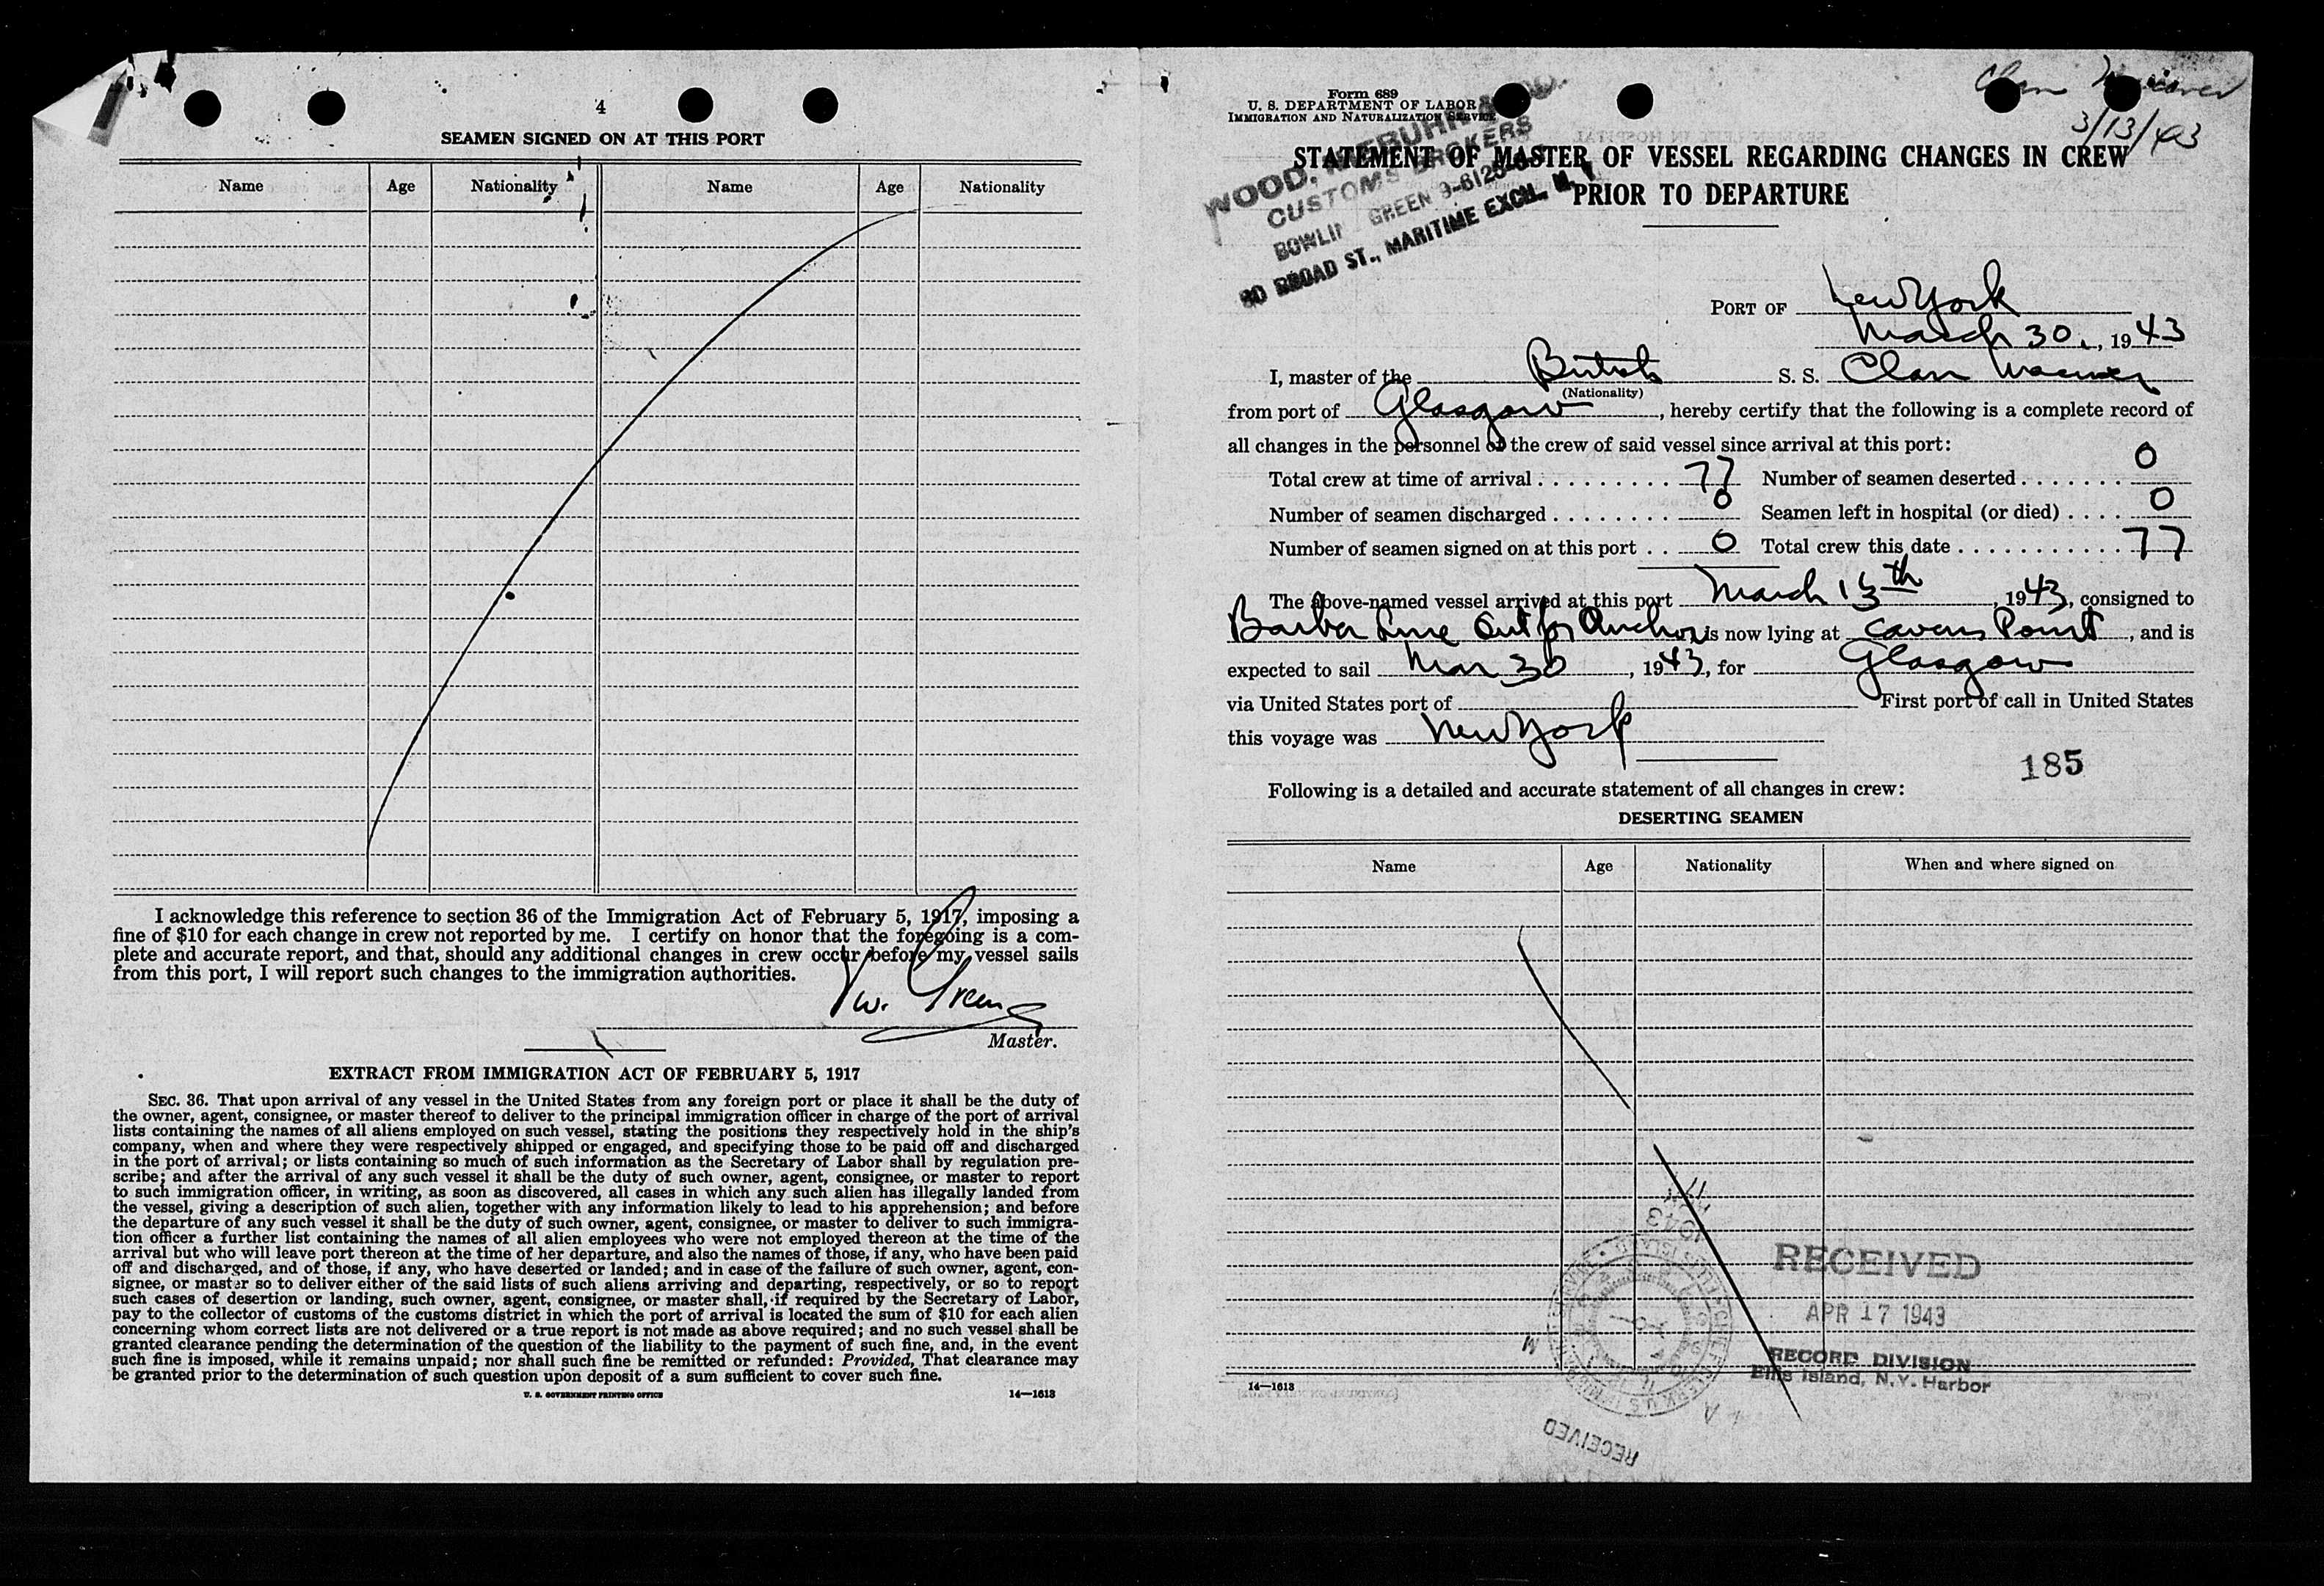 4
SEAMEN SIGNED ON AT THIS PORT
Name Age Nationality Name Age Nationality
I acknowledge this reference to section 36 of the Immigration Act of February 5, 1917, imposing a
fine of $10 for each change in crew not reported by me. I certify on honor that the foregoing is a com-
plete and accurate report, and that, should any additional changes in crew occur before my vessel sails
from this port, I will report such changes to the immigration authorities.
W. Green
Master.
EXTRACT FROM IMMIGRATION ACT OF FEBRUARY 5, 1917
SEC. 36. That upon arrival of any vessel in the United States from any foreign port or place it shall be the duty of
the owner, agent, consignee, or master thereof to deliver to the principal immigration officer in charge of the port of arrival
lists containing the names of all aliens employed on such vessel, stating the positions they respectively hold in the ship's
company, when and where they were respectively shipped or engaged, and specifying those to be paid off and discharged
in the port of arrival; or lists containing so much of such information as the Secretary of Labor shall by regulation pre-
scribe; and after the arrival of any such vessel it shall be the duty of such owner, agent, consignee, or master to report
to such immigration officer, in writing, as soon as discovered, all cases in which any such alien has illegally landed from
the vessel, giving a description of such alien, together with any information likely to lead to his apprehension; and before
the departure of any such vessel it shall be the duty of such owner, agent, consignee, or master to deliver to such immigra-
tion officer a further list containing the names of all alien employees who were not employed thereon at the time of the
arrival but who will leave port thereon at the time of her departure, and also the names of those, if any, who have been paid
off and discharged, and of those, if any, who have deserted or landed; and in case of the failure of such owner, agent, con-
signee, or master so to deliver either of the said lists of such aliens arriving and departing, respectively, or so to report
such cases of desertion or landing, such owner, agent, consignee, or master shall, if required by the Secretary of Labor,
pay to the collector of customs of the customs district in which the port of arrival is located the sum of $10 for each alien
concerning whom correct lists are not delivered or a true report is not made as above required; and no such vessel shall be
granted clearance pending the determination of the question of the liability to the payment of such fine, and, in the event
such fine is imposed, while it remains unpaid; nor shall such fine be remitted or refunded: Provided, That clearance may
be granted prior to the determination of such question upon deposit of a sum sufficient to cover such fine.
U. S. GOVERNMENT PRINTING OFFICE 14—1613
Clan
3/13/43
Form 689
U. S. DEPARTMENT OF LABOR
IMMIGRATION AND NATURALIZATION SERVICE
WOOD, NIEBUHR & CO.
CUSTOMS BROKERS
BOWLING GREEN 9-6125
80 BROAD ST., MARITIME EXCH., N. Y.
STATEMENT OF MASTER OF VESSEL REGARDING CHANGES IN CREW
PRIOR TO DEPARTURE
PORT OF New York
March 30, 1943
I, master of the British S. S. Clan
(Nationality)
from port of Glasgow, hereby certify that the following is a complete record of
all changes in the personnel of the crew of said vessel since arrival at this port:
Total crew at time of arrival . . . . . . . . . 77 Number of seamen deserted . . . . . . . 0
Number of seamen discharged . . . . . . . . 0 Seamen left in hospital (or died) . . . . 0
Number of seamen signed on at this port . . 0 Total crew this date . . . . . . . . . . . . 77
The above-named vessel arrived at this port March 13th, 1943, consigned to
Barber Line Out for Anchor, is now lying at Cavens Point, and is
expected to sail Mar 30, 1943, for Glasgow
via United States port of First port of call in United States
this voyage was New York
185
Following is a detailed and accurate statement of all changes in crew:
DESERTING SEAMEN
Name Age Nationality When and where signed on
1943
RECEIVED
APR 17 1943
RECORD DIVISION
Ellis Island, N.Y. Harbor
14—1613
RECEIVED